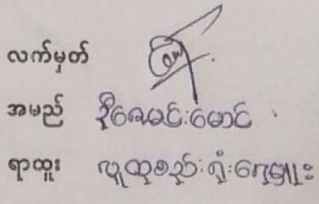 လက်မှတ်
အမည် ဦးဇေမင်းမောင်
ရာထူး လူထုစည်းရုံးရေးမှူး